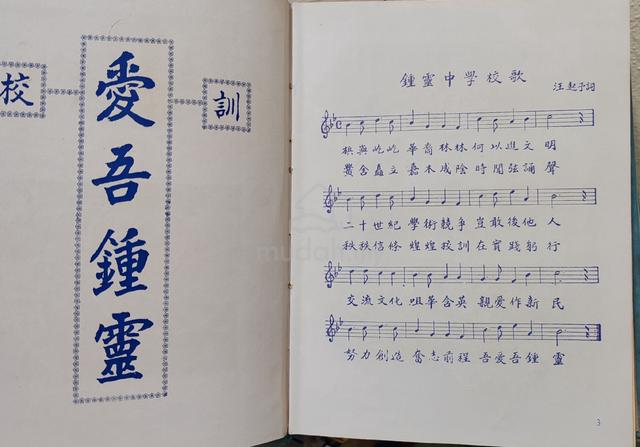 校訓
愛吾鍾靈
鍾靈中學校歌
汪起予詞
屹屹 華裔林林 何以進文明
黌舍矗立 嘉木成陰 時聞弦誦聲
二十世紀 學術競爭 豈敢後他人
秩秩信條 煌煌校訓 在實踐躬行
交流文化 咀華含英 親愛作新民
努力創進 奮志前程 吾愛吾鍾靈
3